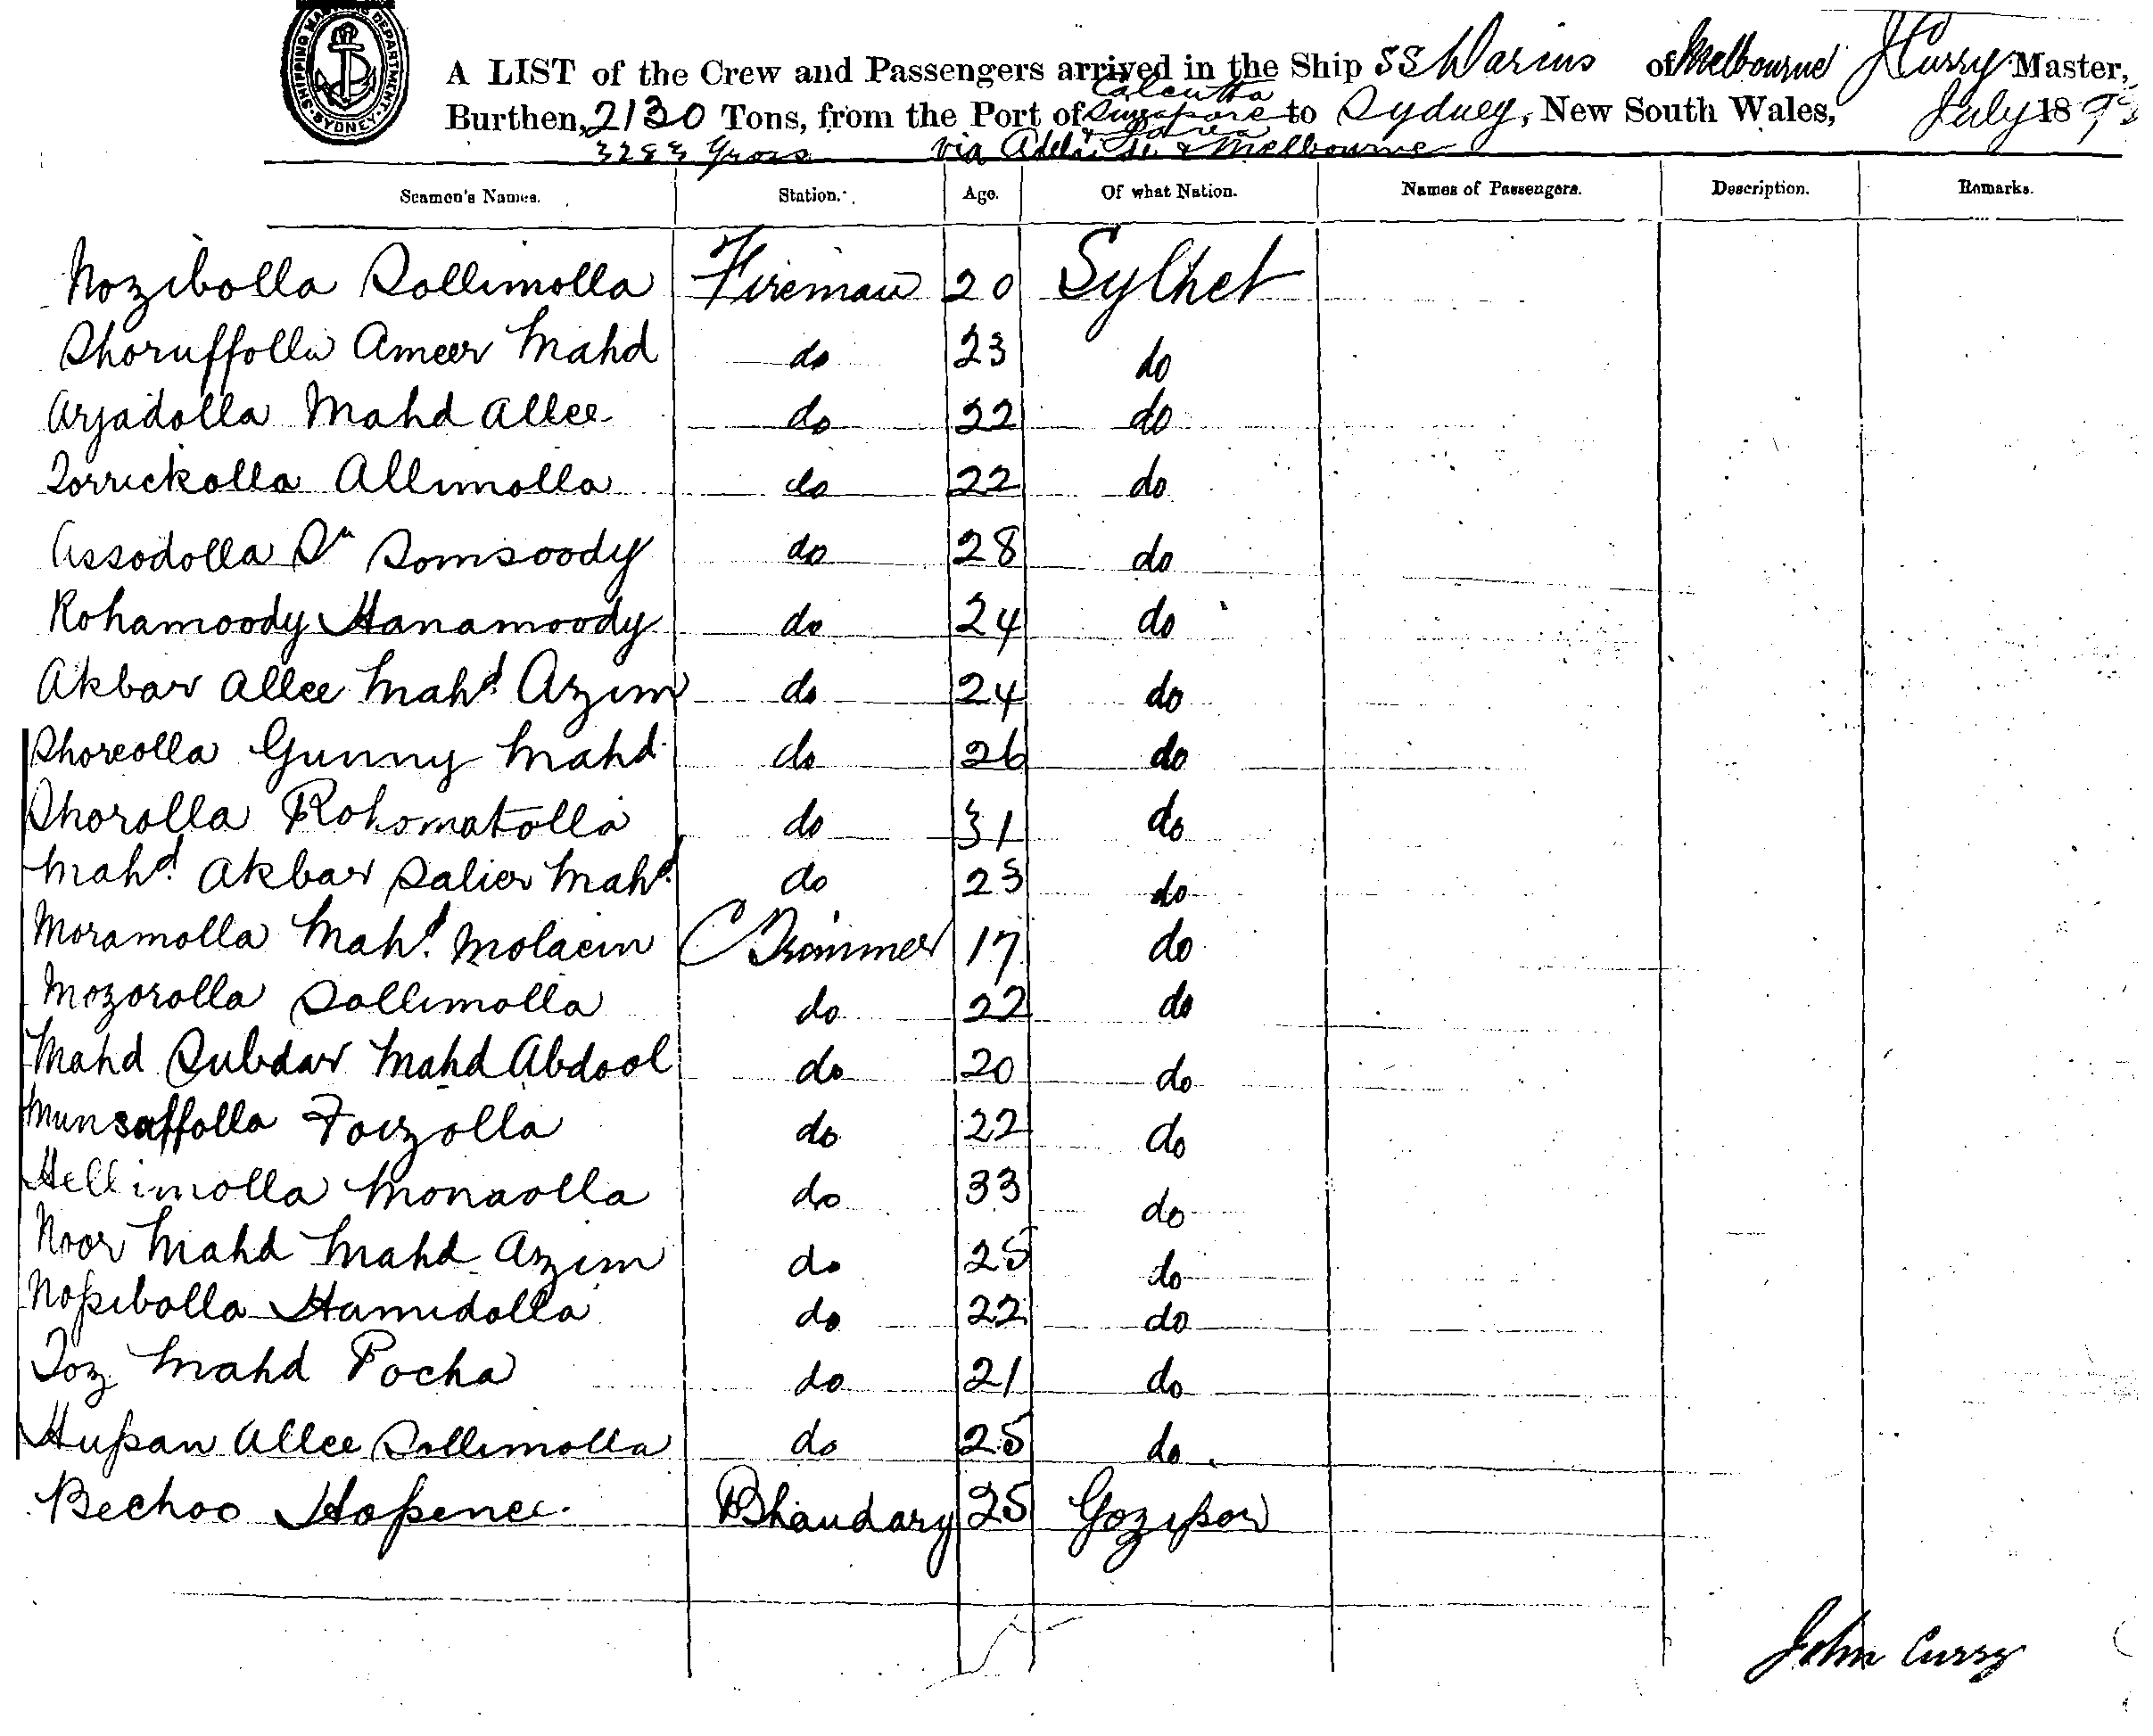 SHIPPING MASTERS DEPARTMENT SYDNEY
A LIST of the Crew and Passengers arrived in the Ship SS Darius of Melbourne J Curry Master,
Burthen, 2130 Tons, from the Port of Calcutta Singapore & Java to Sydney, New South Wales, July 189
3283 Gross via Adelaide & Melbourne
Seamen's Names. Station. Age. Of what Nation. Names of Passengers. Description. Remarks.
Nozibolla Sollimolla Fireman 20 Sylhet
Shoruffolla Ameer Mahd do 23 do
Arjadolla Mahd Allee do 22 do
Torrickolla Allimolla do 22 do
Assodolla Sn Somsoody do 28 do
Rohamoody Hanamoody do 24 do
Akbar Allee Mahd. Azim do 24 do
Shoreolla Gunny Mahd do 26 do
Shorolla Rohomatolla do 31 do
Mahd. Akbar Salier Mahd. do 23 do
Moramolla Mahd. Molaein C Trimmer 17 do
Mozorolla Sollimolla do 22 do
Mahd Subdar Mahd Abdool do 20 do
Munsaffolla Foizolla do 22 do
Hellimolla Monaolla do 33 do
Noor Mahd Mahd Azim do 25 do
Noßibolla Hamidolla do 22 do
Toz Mahd Pocha do 21 do
Hußan Allee Sollimolla do 25 do
Bechoo Hoßenee Bhandary 25 Gozipor
John Curry